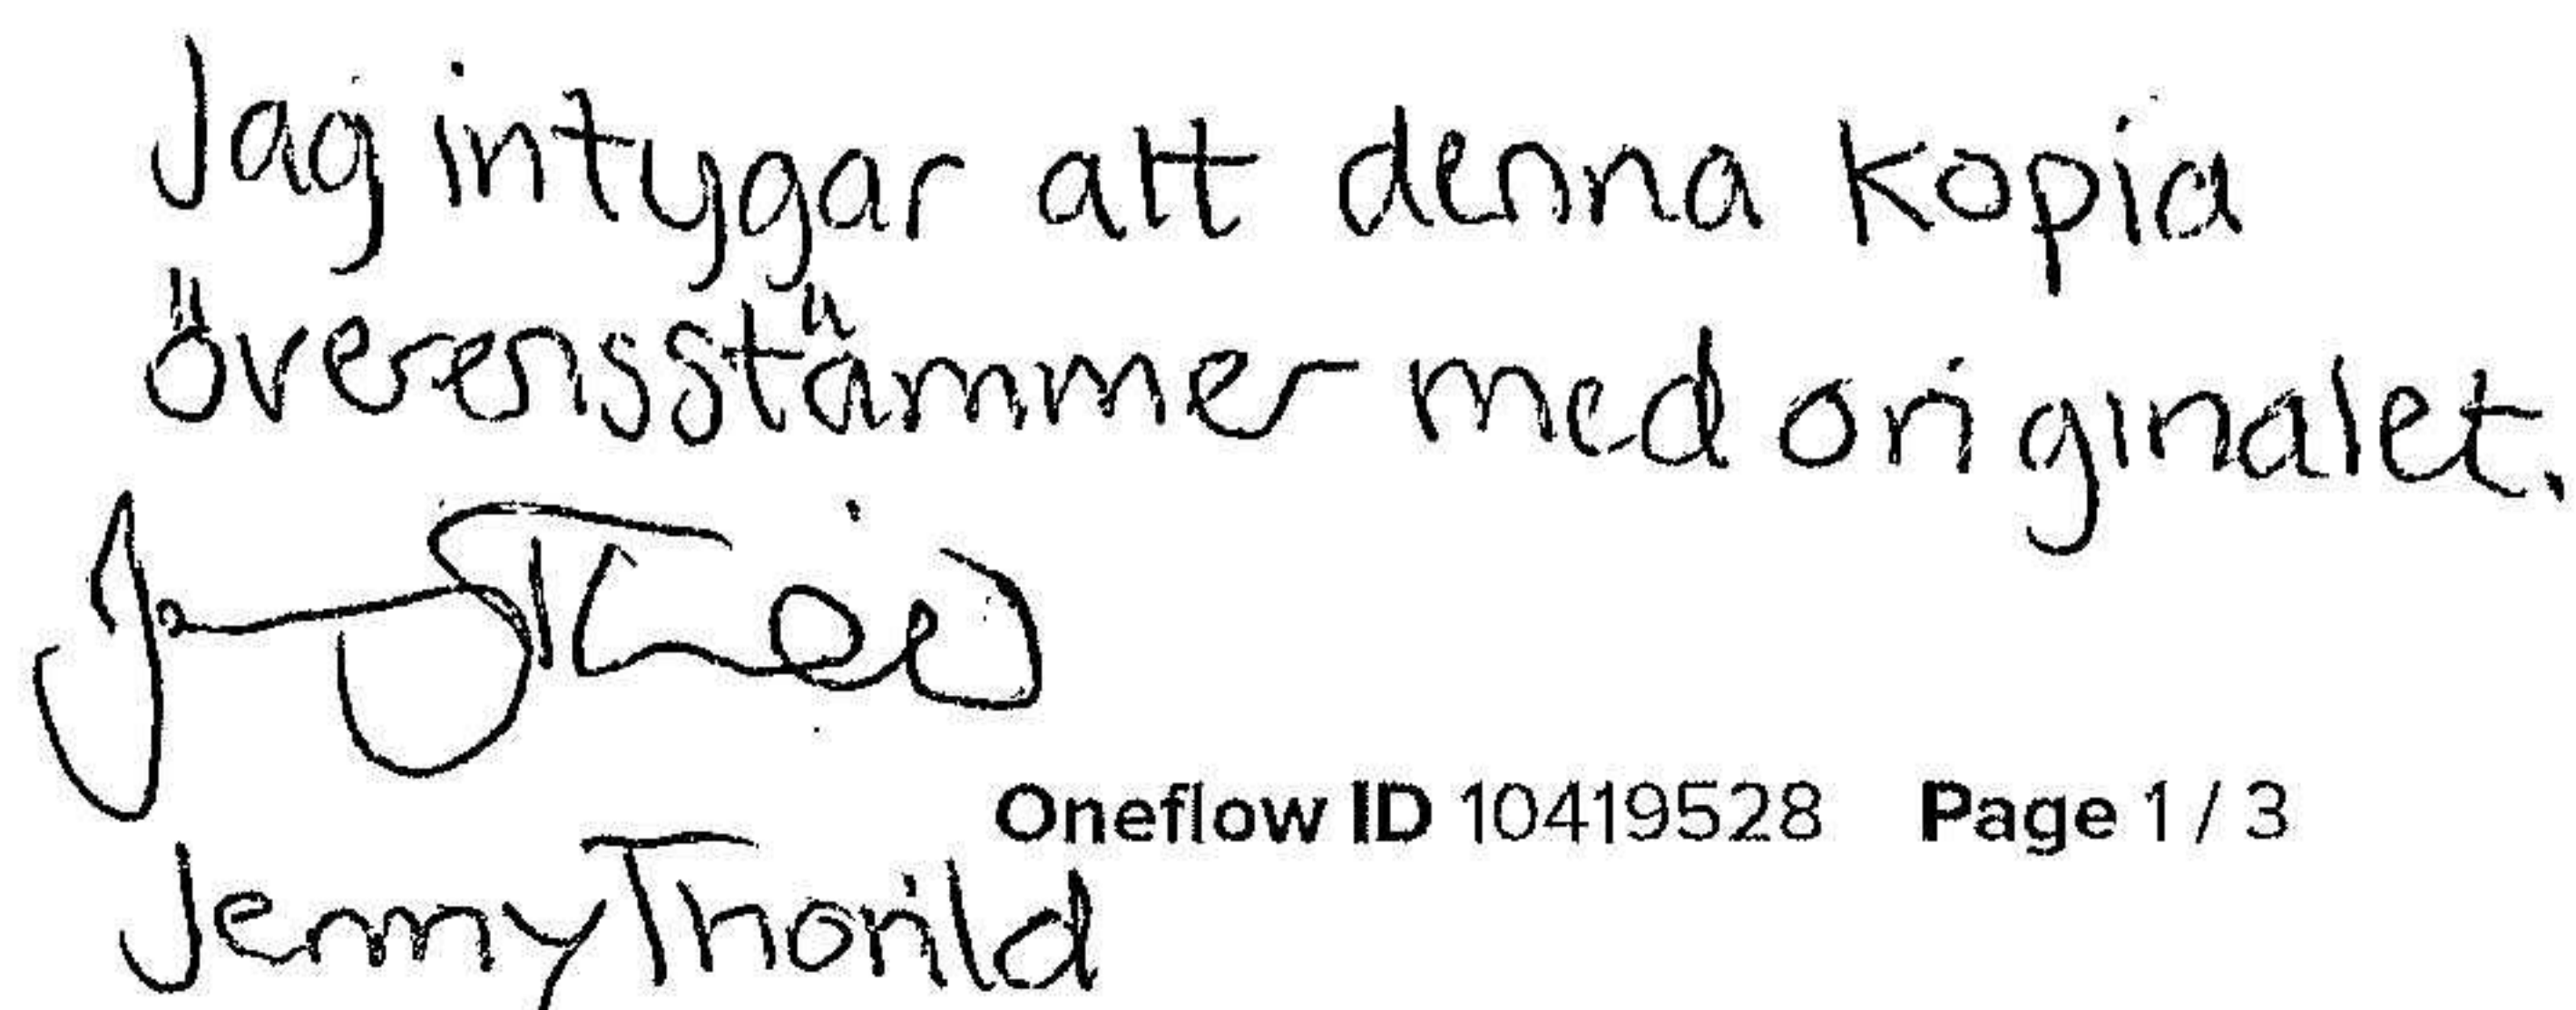 Jag intygar att denna kopia
överensstämmer med originalet.
Jenny Thorild
Oneflow ID 10419528 Page 1 / 3
Jenny Thorild